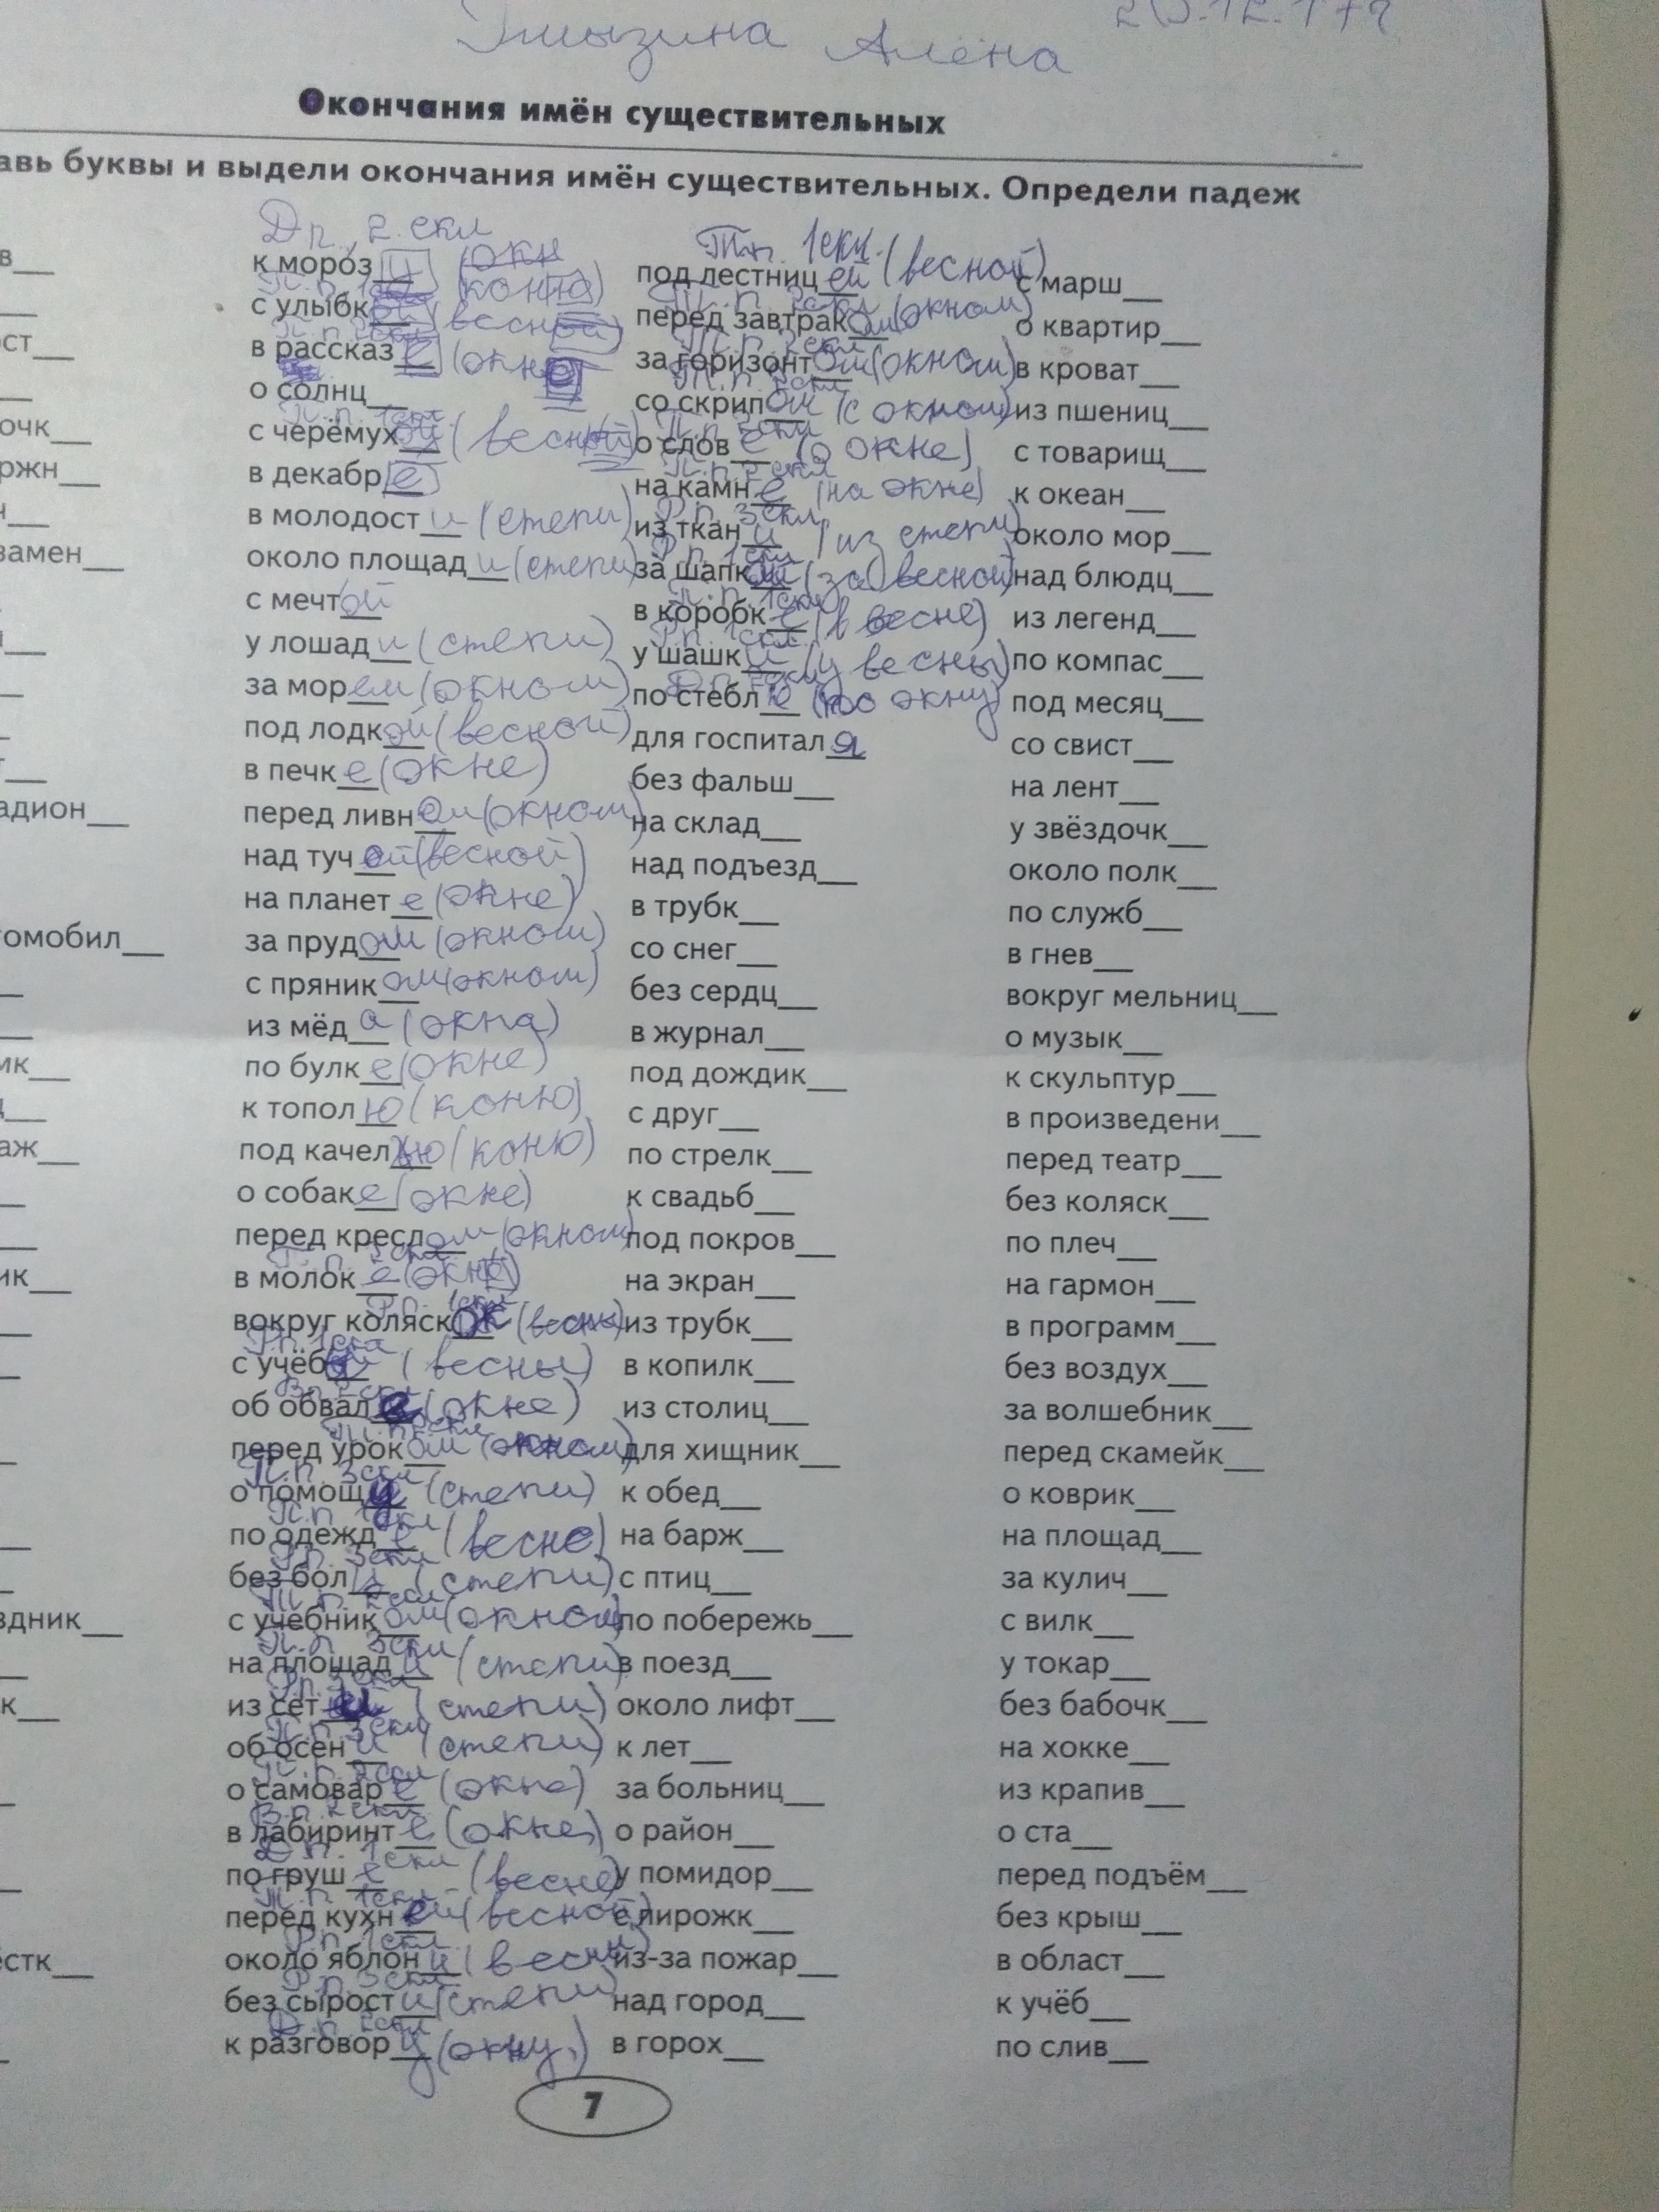 Алёна
Окончания имён существительных
авь буквы и выдели окончания имён существительных. Определи падеж
в___
ст___
очк___
ржн___
замен___
адион___
томобил___
мк___
аж___
ик___
здник___
к___
стк___
Дп. 2 скл
к мороз у (окн
с улыбк ой (весной)
в рассказ е (окне
о солнц___
с черёмух ой (весной)
в декабр е
в молодост и (степи)
около площад и (степи)
с мечт ой
у лошад и (степи)
за мор ем (окном)
под лодк ой (весной)
в печк е (окне)
перед ливн ем (окном)
над туч ей (весной)
на планет е (окне)
за пруд ом (окном)
с пряник ом (окном)
из мёд а (окна)
по булк е (окне)
к топол ю (коню)
под качел ью (коню)
о собак е (окне)
перед кресл ом (окном)
в молок е (окне)
вокруг коляск
с учёб (весны)
об обвал е (окне)
перед урок ом (окном)
П.п. 3 скл
о помощ и (степи)
П.п 1 скл
по одежд е (весне)
Р.п. 3 скл
без бол и (степи)
Т.п. 2 скл
с учебник ом (окном)
П.п 3 скл
на площад и (степи)
Р.п. 3 скл
из сет и (степи)
П.п. 3 скл
об осен и (степи)
П.п. 2 скл
о самовар е (окне)
В.п. 2 скл
в лабиринт е (окне)
Д.п. 1 скл
по груш е (весне)
Т.п. 1 скл
перед кухн ей (весной)
Р.п. 1 скл
около яблон и (весны)
Р.п. 3 скл
без сырост и (степи)
Д.п. 2 скл
к разговор у (окну)
Тп. 1 скл.
под лестниц ей (весной)
перед завтрак ом (окном)
за горизонт ом (окном)
со скрип ом (с окном)
П.п. 2 скл
о слов е (о окне)
П.п. 2 скл
на камн е (на окне)
Р.п. 3 скл
из ткан и (из степи)
Р.п. 1 скл
за шапк ой (за весной)
П.п. 1 скл
в коробк е (в весне)
Р.п. 1 скл
у шашк и (у весны)
Д.п. 2 скл
по стебл ю (по окну)
для госпитал я
без фальш___
на склад___
над подъезд___
в трубк___
со снег___
без сердц___
в журнал___
под дождик___
с друг___
по стрелк___
к свадьб___
под покров___
на экран___
из трубк___
в копилк___
из столиц___
для хищник___
к обед___
на барж___
с птиц___
по побережь___
в поезд___
около лифт___
к лет___
за больниц___
о район___
у помидор___
с пирожк___
из-за пожар___
над город___
в горох___
с марш___
о квартир___
в кроват___
из пшениц___
с товарищ___
к океан___
около мор___
над блюдц___
из легенд___
по компас___
под месяц___
со свист___
на лент___
у звёздочк___
около полк___
по служб___
в гнев___
вокруг мельниц___
о музык___
к скульптур___
в произведени___
перед театр___
без коляск___
по плеч___
на гармон___
в программ___
без воздух___
за волшебник___
перед скамейк___
о коврик___
на площад___
за кулич___
с вилк___
у токар___
без бабочк___
на хокке___
из крапив___
о ста___
перед подъём___
без крыш___
в област___
к учёб___
по слив___
7